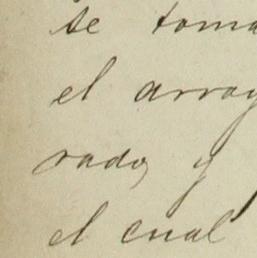 se toma
el arroy
rado, y
el cual